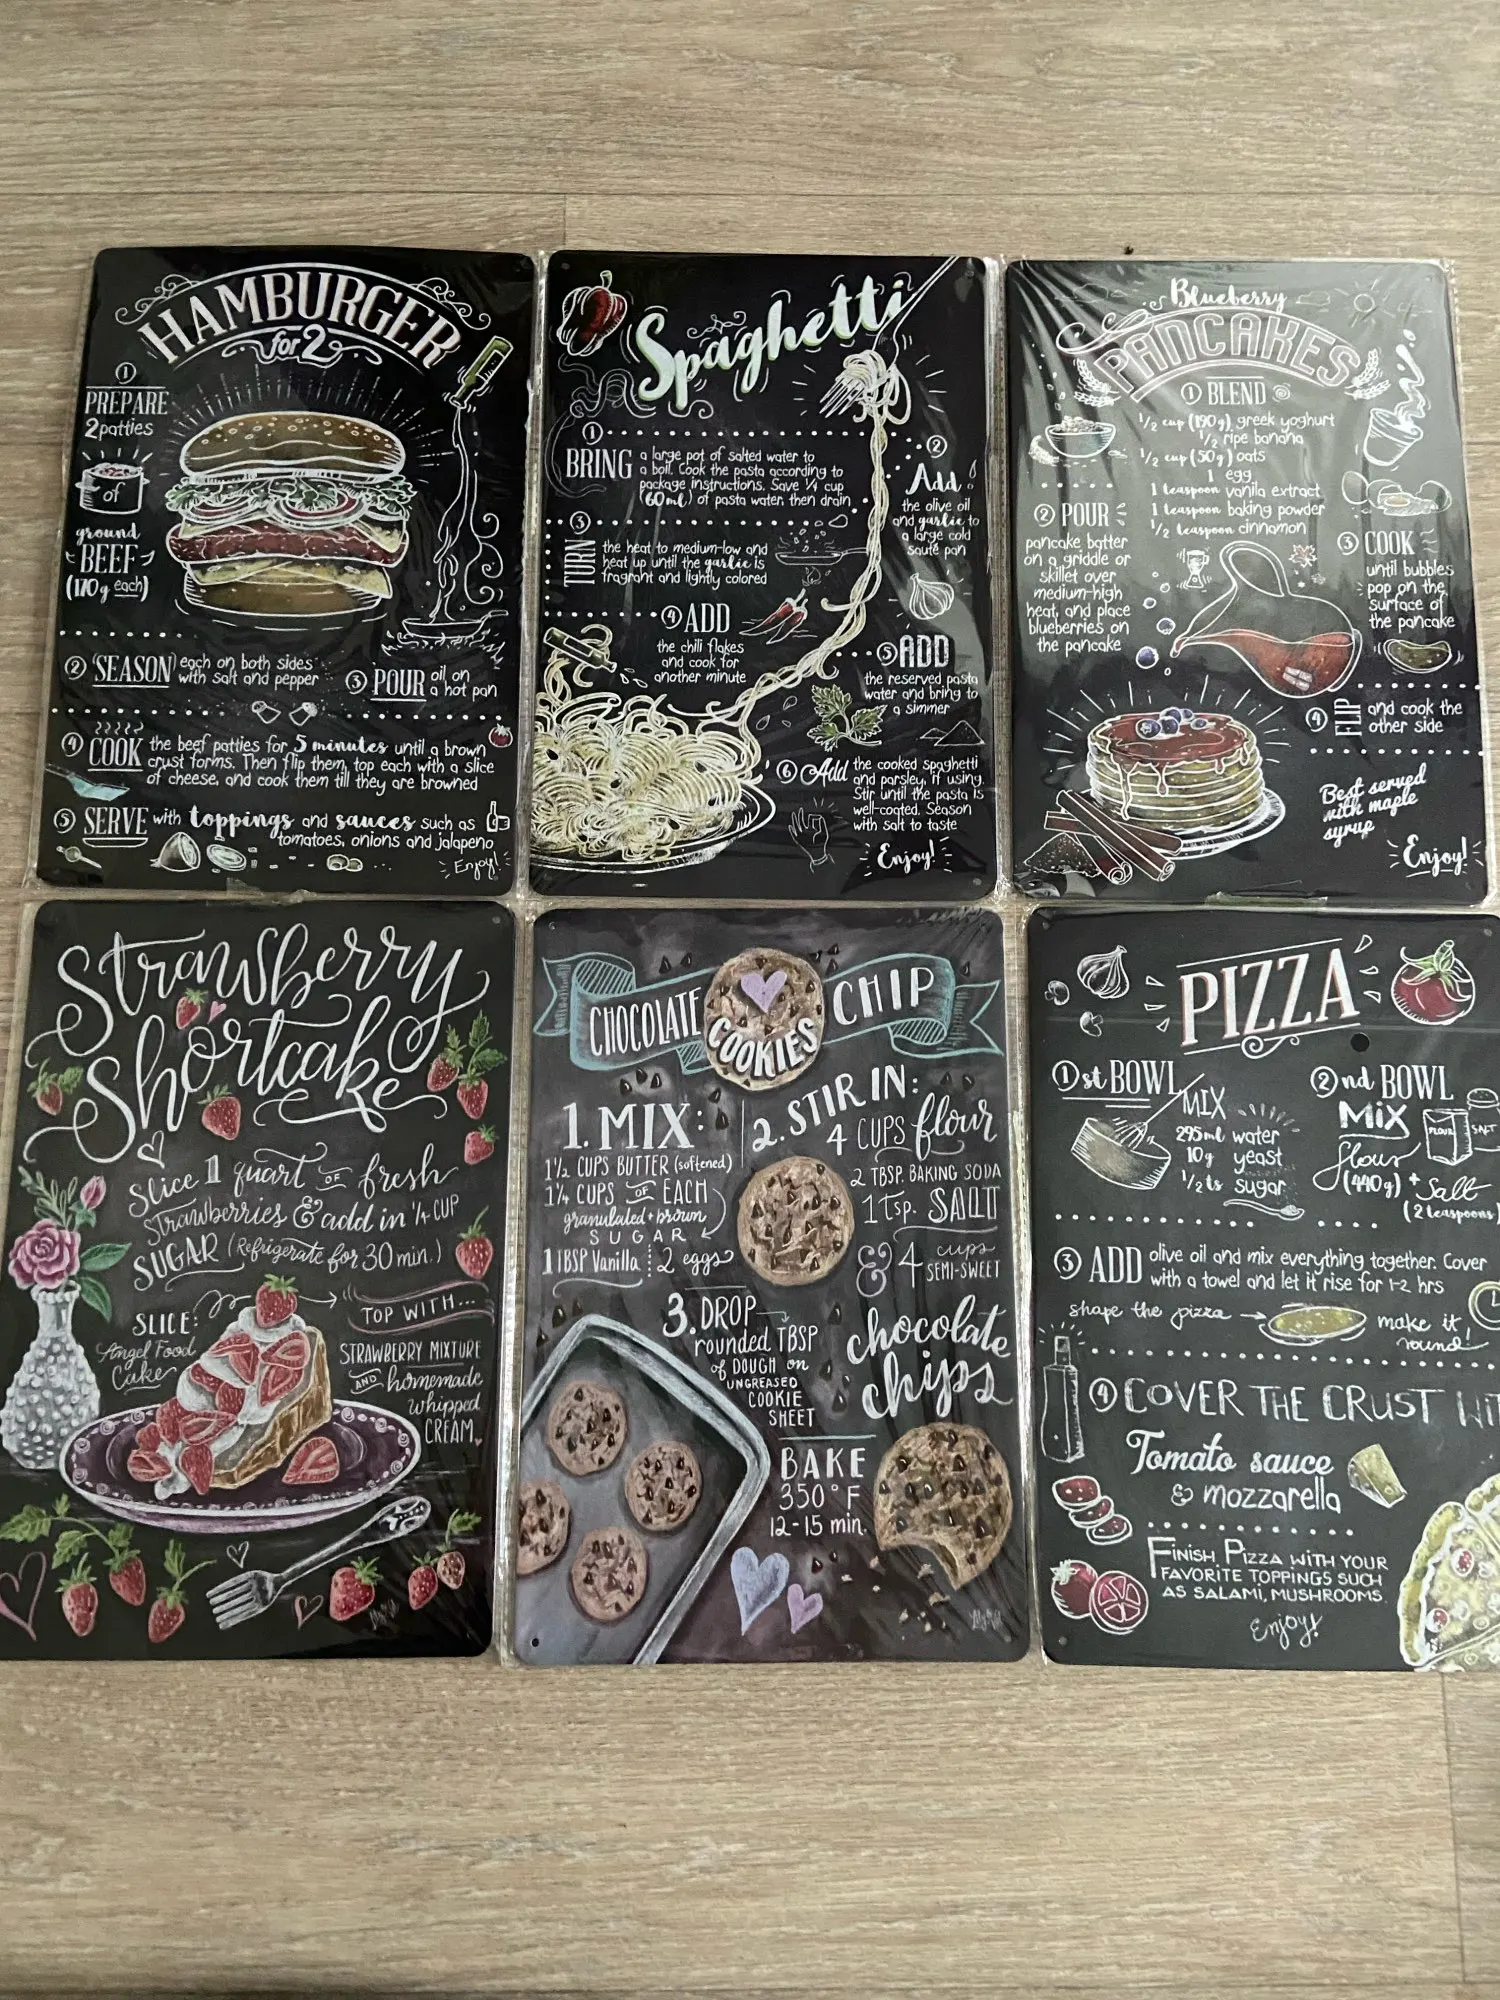 HAMBURGER
for 2
1
PREPARE
2 patties
of
ground
BEEF
(170g each)
2 SEASON each on both sides
with salt and pepper
3 POUR oil on
a hot pan
4 COOK the beef patties for 5 minutes until a brown
crust forms. Then flip them, top each with a slice
of cheese, and cook them till they are browned
5 SERVE with toppings and sauces such as
tomatoes, onions and jalapeno
Enjoy!
Spaghetti
1
BRING a large pot of salted water to
a boil. Cook the pasta according to
package instructions. Save 1/4 cup
(60ml) of pasta water, then drain
2
Add
the olive oil
and garlic to
a large cold
sauté pan
3
TURN the heat to medium-low and
heat up until the garlic is
fragrant and lightly colored
4 ADD
the chili flakes
and cook for
another minute
5 ADD
the reserved pasta
water and bring to
a simmer
6 Add the cooked spaghetti
and parsley, if using.
Stir until the pasta is
well-coated. Season
with salt to taste
Enjoy!
Blueberry
PANCAKES
1 BLEND
1/2 cup (190g) greek yoghurt
1/2 ripe banana
1/2 cup (50g) oats
1 egg
1 teaspoon vanila extract
1 teaspoon baking powder
1/2 teaspoon cinnamon
2 POUR
pancake batter
on a griddle or
skillet over
medium-high
heat, and place
blueberries on
the pancake
3 COOK
until bubbles
pop on the
surface of
the pancake
4 FLIP and cook the
other side
Best served
with maple
syrup
Enjoy!
Strawberry
Shortcake
Slice 1 quart OF fresh
Strawberries & add in 1/4 CUP
SUGAR (Refrigerate for 30 min.)
SLICE:
Angel Food
Cake
TOP WITH...
STRAWBERRY MIXTURE
AND homemade
whipped
CREAM
CHOCOLATE CHIP
COOKIES
1. MIX:
1 1/2 CUPS BUTTER (softened)
1 1/4 CUPS OF EACH
granulated + brown
SUGAR
1 TBSP Vanilla 2 eggs
2. STIR IN:
4 CUPS flour
2 TBSP. BAKING SODA
1 Tsp. SALT
& 4 cups
SEMI-SWEET
chocolate
chips
3. DROP
rounded TBSP
of DOUGH on
UNGREASED
COOKIE
SHEET
BAKE
350°F
12-15 min.
PIZZA
1st BOWL
MIX
295ml water
10g yeast
1/2 ts sugar
2nd BOWL
MIX
flour
(440g) + Salt
(2 teaspoons)
FLOUR
SALT
3 ADD olive oil and mix everything together. Cover
with a towel and let it rise for 1-2 hrs
shape the pizza
make it
round!
4 COVER THE CRUST WIT
Tomato sauce
& mozzarella
FINISH PIZZA WITH YOUR
FAVORITE TOPPINGS SUCH
AS SALAMI, MUSHROOMS
Enjoy!